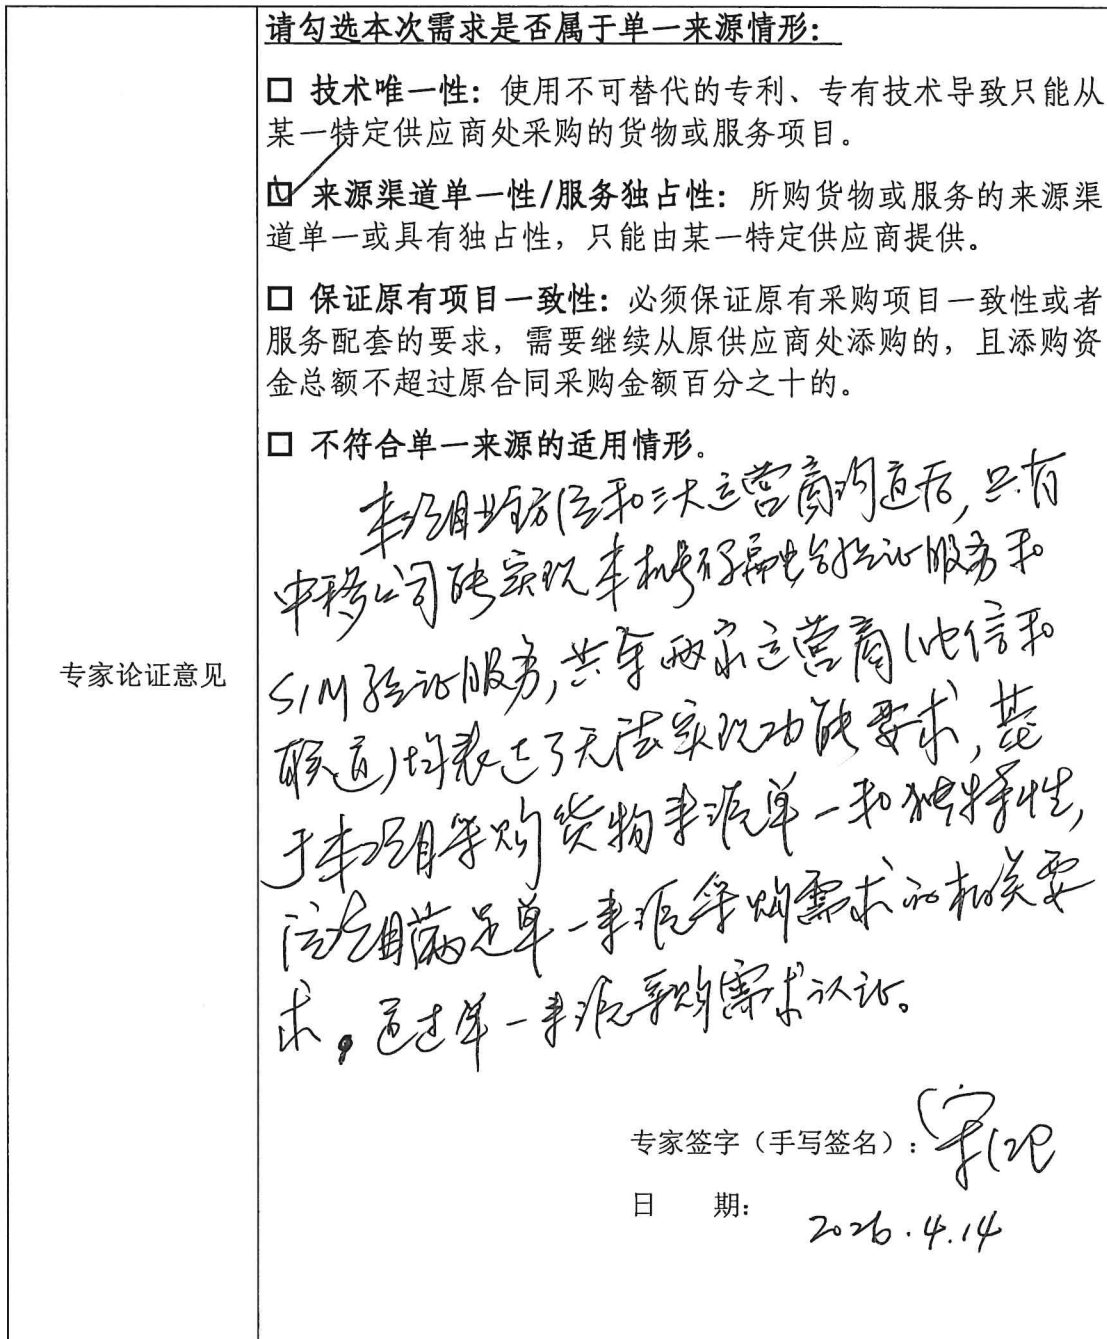 请勾选本次需求是否属于单一来源情形:
□ 技术唯一性: 使用不可替代的专利、专有技术导致只能从
某一特定供应商处采购的货物或服务项目。
☑ 来源渠道单一性/服务独占性: 所购货物或服务的来源渠
道单一或具有独占性, 只能由某一特定供应商提供。
□ 保证原有项目一致性: 必须保证原有采购项目一致性或者
服务配套的要求, 需要继续从原供应商处添购的, 且添购资
金总额不超过原合同采购金额百分之十的。
□ 不符合单一来源的适用情形。
本项目业主方和三大运营商沟通后, 只有
中移公司能实现本机号码验证服务和
专家论证意见
SIM验证服务, 其余两家运营商(电信和
联通)均表达了无法实现功能要求, 基
于本项目采购货物来源单一和独特性,
该项目满足单一来源采购需求的相关要
求, 通过单一来源采购需求认证。
专家签字（手写签名）: 
日 期: 2026.4.14